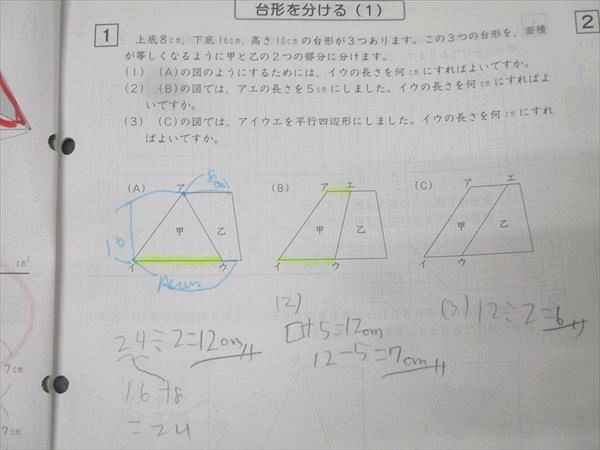 台形を分ける（1）
1
2
上底8cm，下底16cm，高さ10cmの台形が3つあります。この3つの台形を，面積
が等しくなるように甲と乙の2つの部分に分けます。
（1）（A）の図のようにするためには，イウの長さを何cmにすればよいですか。
（2）（B）の図では，アエの長さを5cmにしました。イウの長さを何cmにすればよ
いですか。
（3）（C）の図では，アイウエを平行四辺形にしました。イウの長さを何cmにすれ
ばよいですか。
（A）
ア
甲
乙
イ
ウ
（B）
ア
エ
甲
乙
イ
ウ
（C）
ア
エ
甲
乙
イ
ウ
24÷2=12cm
16+8
=24
(2)
□+5=12cm
12-5=7cm
(3) 12÷2=6
cm²
7cm
7cm